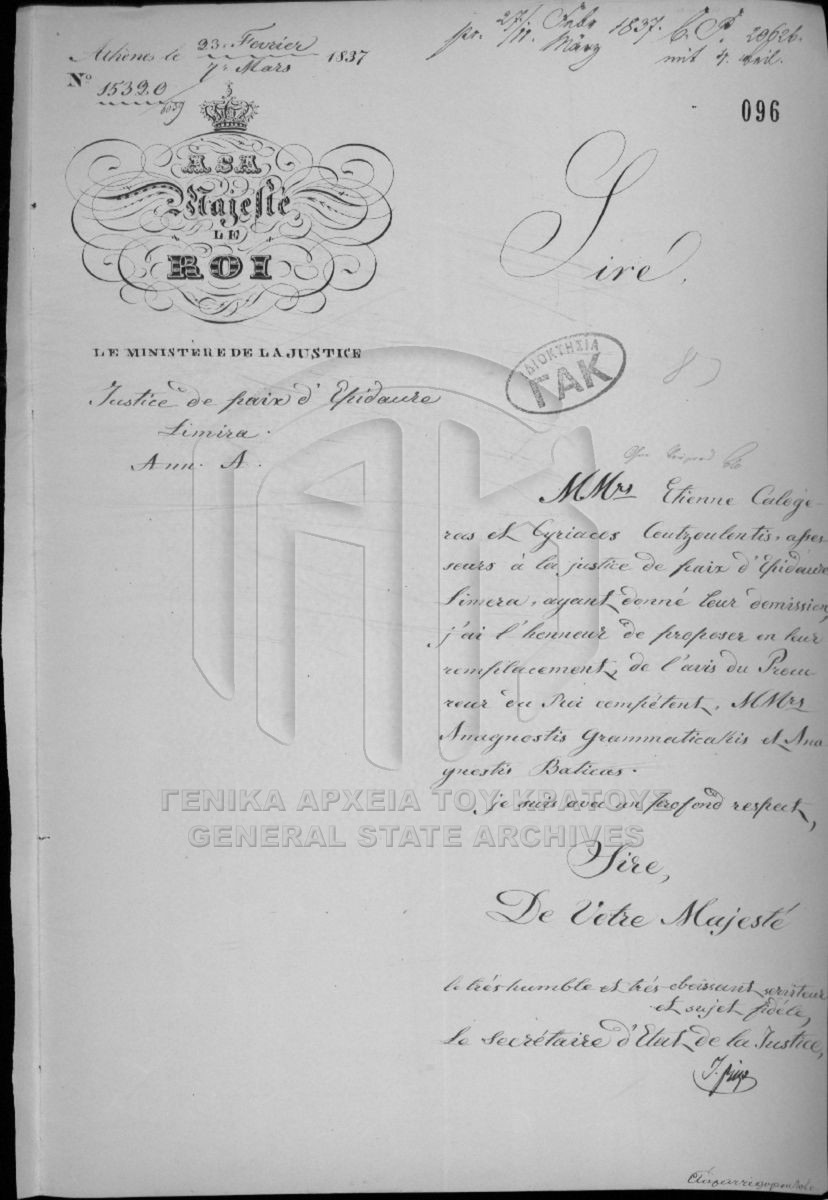 Athènes le 23. Fevrier / 7. Mars 1837
Nº 15320
pr. 27/11. Febr März 1837.
mit 4.
096
A SA
Majesté
LE
ROI
LE MINISTÈRE DE LA JUSTICE
Justice de paix d'Epidaure
Limira.
Ann. A.
Siré,
ΙΔΙΟΚΤΗΣΙΑ
ΓΑΚ
MMrs Etienne Calogé-
ras et Cyriacos Coutzoulentis, asses-
seurs à la justice de paix d'Epidaure
Limera, ayant donné leur démission,
j'ai l'honneur de proposer en leur
remplacement, de l'avis du Procu
reur du Roi compétent, MMrs
Anagnostis Grammaticakis et Ana
gnostis Baticas.
je suis avec un profond respect,
ΓΕΝΙΚΑ ΑΡΧΕΙΑ ΤΟΥ ΚΡΑΤΟΥΣ
GENERAL STATE ARCHIVES
Sire,
De Votre Majesté
le trés humble et trés obeissant serviteur
et sujet fidéle,
Le Secrétaire d'Etat de la Justice,